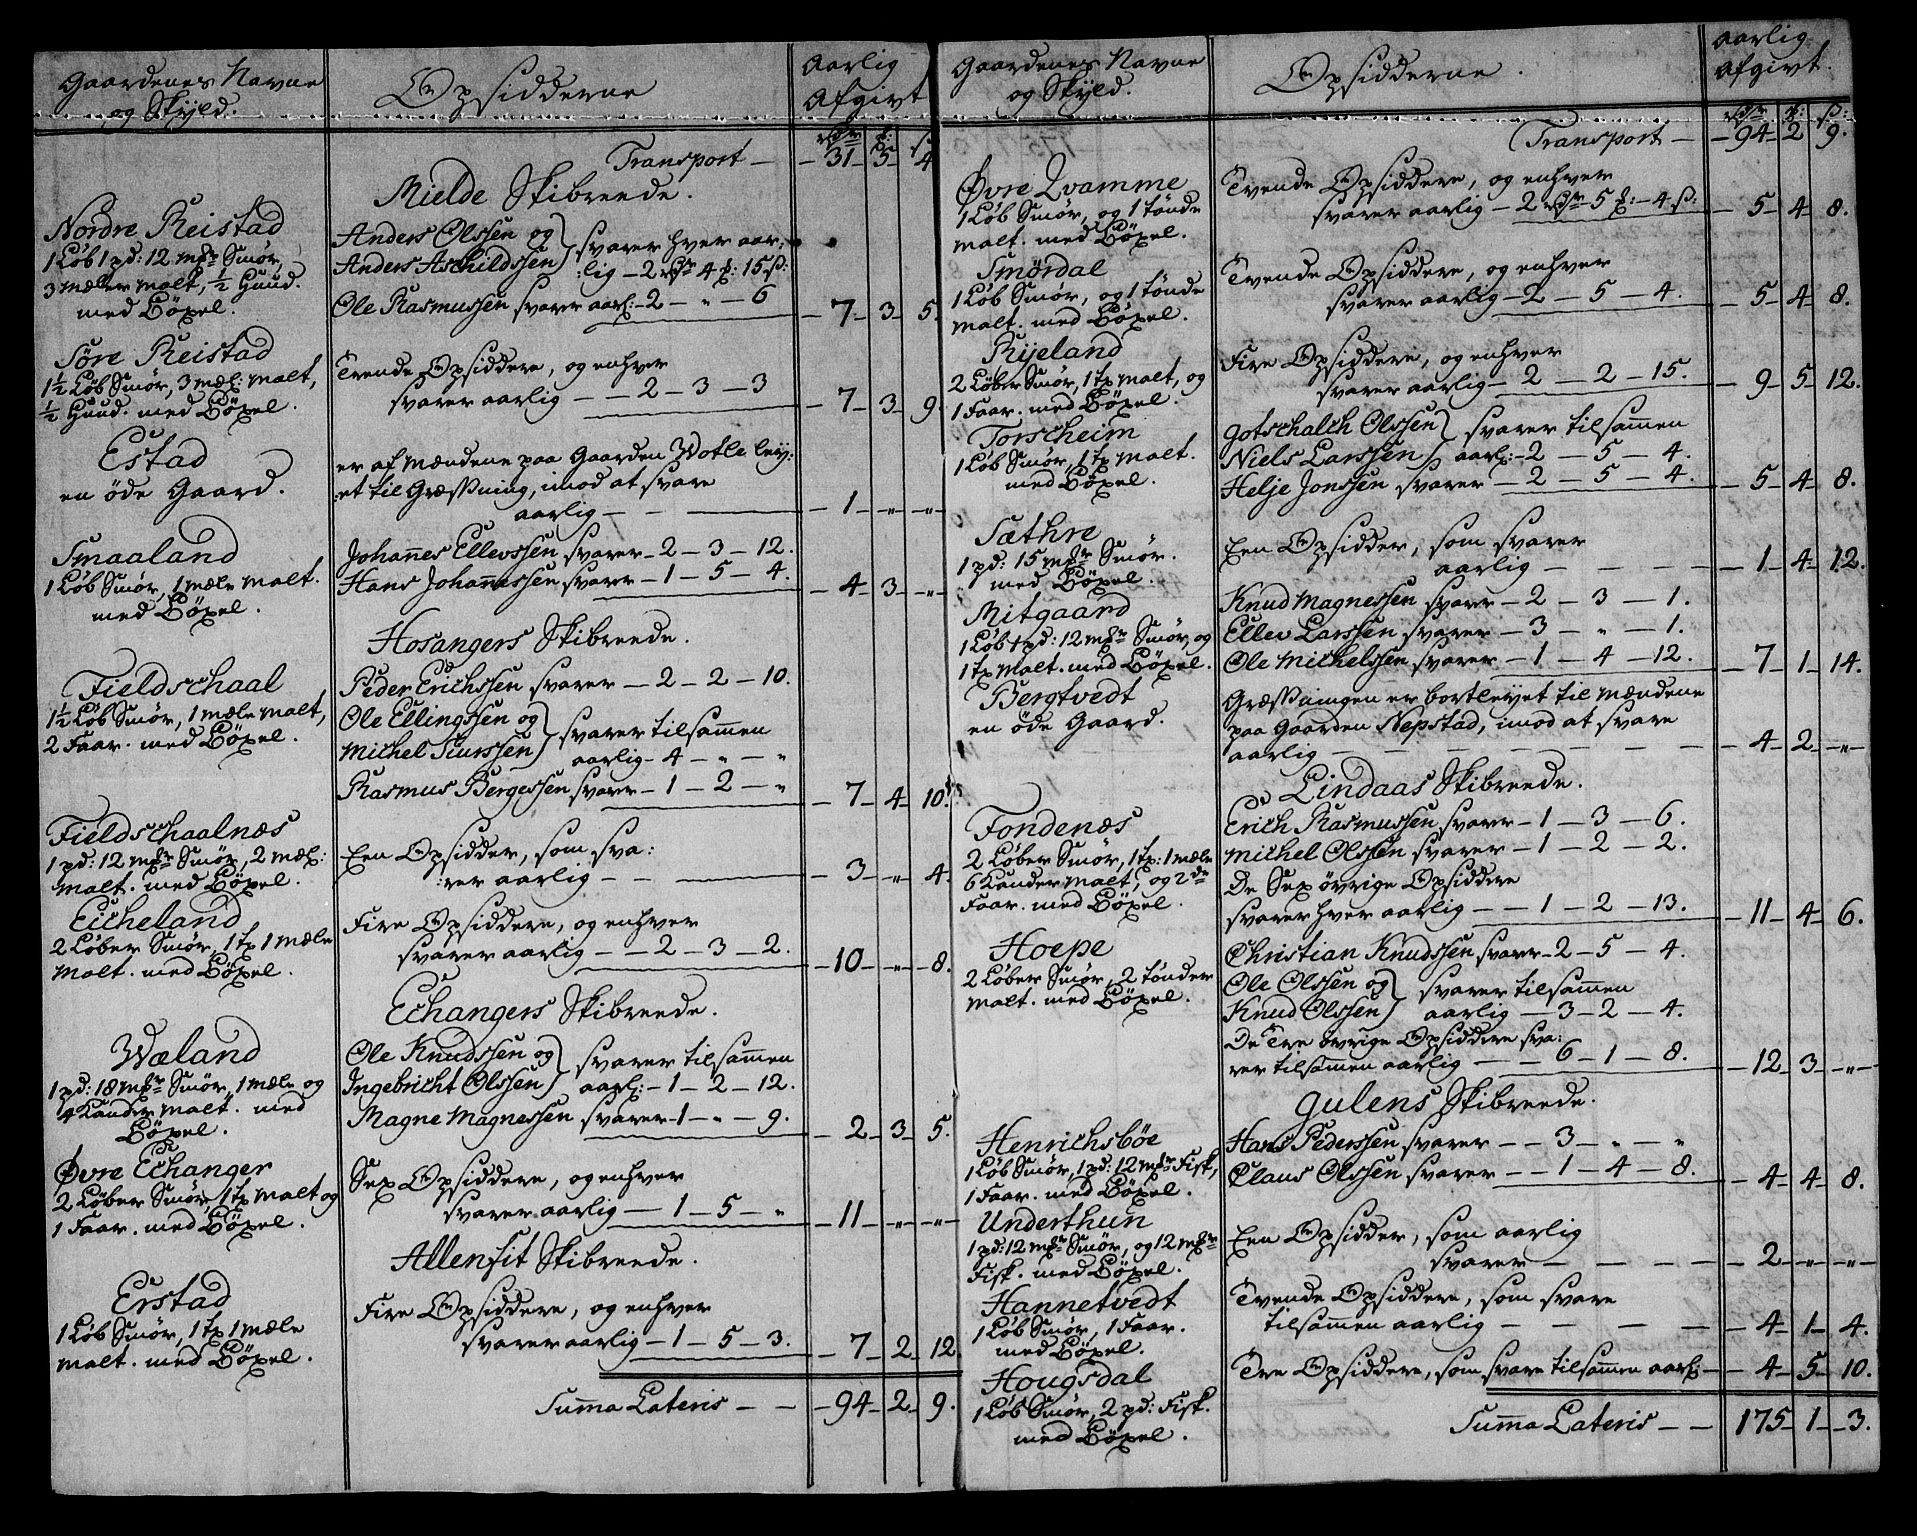 Gaardenes Navne
og Skyld.
Opsidderne
Aarlig
Afgivt
rdr
Transport — — 31 — 5 4
Mielde Skibreede.
Nordre Reistad
1 Löb 1 pd: 12 mkr Smör,
3 mæler malt, ½ Huud.
med Böxel.
Anders Olssen og
Anders Aschildssen
svarer hver aar:
:lig — 2 rdr 4 ƒ: 15 ß:
Ole Rasmussen svarer aarl: — 2 — " — 6
— 7 — 3 — 5.
Söre Reistad
1½ Löb Smör, 3 mæl: malt,
½ Huud. med Böxel.
Tvende Opsiddere, og enhver
svarer aarlig — — 2 — 3 — 3
— 7 — 3 — 9.
Estad
en öde Gaard.
er af Mændene paa Gaarden Wotle ley:
:et til Græssning, imod at svare
aarlig — — — 1 — " — "
Smaaland
1 Löb Smör, 1 mæle malt.
med Böxel.
Johannes Ellevssen svarer — 2 — 3 — 12.
Hans Johannessen svarer — 1 — 5 — 4.
— 4 — 3 — "
Hosangers Skibreede.
Fieldschaal
1½ Löb Smör, 1 mæle malt,
2 Faar. med Böxel.
Peder Erichssen svarer — 2 — 2 — 10.
Ole Ellingssen og
Michel Siurssen
svarer tilsam̄en
aarlig — 4 — " — "
Rasmus Bergessen svarer — 1 — 2 — "
— 7 — 4 — 10.
Fieldschaalnæs
1 pd: 12 mkr Smör, 2 mæl:
malt. med Böxel.
Een Opsidder, som sva:
:rer aarlig — — — 3 — " — 4.
Eicheland
2 Löber Smör, 1 tx 1 mæle
malt. med Böxel.
Fire Opsiddere, og enhver
svarer aarlig — — 2 — 3 — 2.
— 10 — " — 8.
Echangers Skibreede.
Wæland
1 pd: 18 mkr Smör, 1 mæle og
4 Kander malt. med
Böxel.
Ole Knudssen og
Ingebricht Olssen
svarer tilsam̄en
aarl: — 1 — 2 — 12.
Magne Magnessen svarer — 1 — " — 9.
— 2 — 3 — 5.
Øvre Echanger
2 Löber Smör, 1 tx malt og
1 Faar. med Böxel.
Sex Opsiddere, og enhver
svarer aarlig — 1 — 5 — "
— 11 — " — "
Allenfit Skibreede.
Erstad
1 Löb Smör, 1 tx 1 mæle
malt. med Böxel.
Fire Opsiddere, og enhver
svarer aarlig — 1 — 5 — 3.
— 7 — 2 — 12
Sum̄a Lateris — — — 94 — 2 — 9.
Gaardenes Navne
og Skyld.
Opsidderne.
Aarlig
Afgivt.
rdr ƒ: ß:
Transport — — 94 — 2 9.
Øvre Qvamme
1 Löb Smör, og 1 tönde
malt. med Böxel.
Tvende Opsiddere, og enhver
svarer aarlig — 2 rdr 5 ƒ: — 4 ß:
— 5 — 4 — 8.
Smördal
1 Löb Smör, og 1 tönde
malt. med Böxel.
Tvende Opsiddere, og enhver
svarer aarlig — 2 — 5 — 4.
— 5 — 4 — 8.
Ryeland
2 Löber Smör, 1 tx malt, og
1 Faar. med Böxel.
Fire Opsiddere, og enhver
svarer aarlig — 2 — 2 — 15.
— 9 — 5 — 12.
Torscheim
1 Löb Smör, 1 tx malt.
med Böxel.
Gotschalch Olssen
Niels Larssen
svarer tilsam̄en
aarl: — 2 — 5 — 4.
Helje Jonssen svarer — 2 — 5 — 4.
— 5 — 4 — 8.
Sæthre
1 pd: 15 mkr Smör.
med Böxel.
Een Opsidder, som svarer
aarlig — — — — 1 — 4 — 12.
Mitgaard
1 Löb 1 pd: 12 mkr Smör, og
1 tx malt. med Böxel.
Knud Magnessen svarer — 2 — 3 — 1.
Ellev Larssen svarer — 3 — " — 1.
Ole Michelssen svarer — 1 — 4 — 12.
— 7 — 1 — 14.
Bergtvedt
en öde Gaard.
Græssningen er bortleyet til Mændene
paa Gaarden Nepstad, imod at svare
aarlig — — — — — — 4 — 2 — "
Lindaas Skibreede.
Fondenæs
2 Löber Smör, 1 tx: 1 mæle
6 Kander malt, og 2de
Faar. med Böxel.
Erich Rasmussen svarer — 1 — 3 — 6.
Michel Olssen svarer — 1 — 2 — 2.
De Sex övrige Opsiddere
svarer hver aarlig — — 1 — 2 — 13.
— 11 — 4 — 6.
Hoepe
2 Löber Smör, 2 tönder
malt. med Böxel.
Christian Knudssen svarer — 2 — 5 — 4.
Ole Olssen og
Knud Olssen
svarer tilsam̄en
aarlig — 3 — 2 — 4.
De Tre övrige Opsiddere sva:
rer tilsam̄en aarlig — — 6 — 1 — 8.
— 12 — 3 — "
Gulens Skibreede.
Henrichsböe
1 Löb Smör, 1 pd: 12 mkr Fisk,
1 Faar. med Böxel.
Hans Pederssen svarer — — 3 — " — "
Claus Olssen svarer — — 1 — 4 — 8.
— 4 — 4 — 8.
Underthun
1 pd: 12 mkr Smör, og 12 mkr
Fisk. med Böxel.
Een Opsidder, som aarlig
svarer — — — — — 2 — " — "
Hannetvedt
1 Löb Smör, 1 Faar.
med Böxel.
Tvende Opsiddere, som svare
tilsam̄en aarlig — — — — — 4 — 1 — 4.
Hougsdal
1 Löb Smör, 2 pd: Fisk.
med Böxel.
Tre Opsiddere, som svare tilsam̄en aarl: — 4 — 5 — 10.
Sum̄a Lateris — — 175 — 1 — 3.